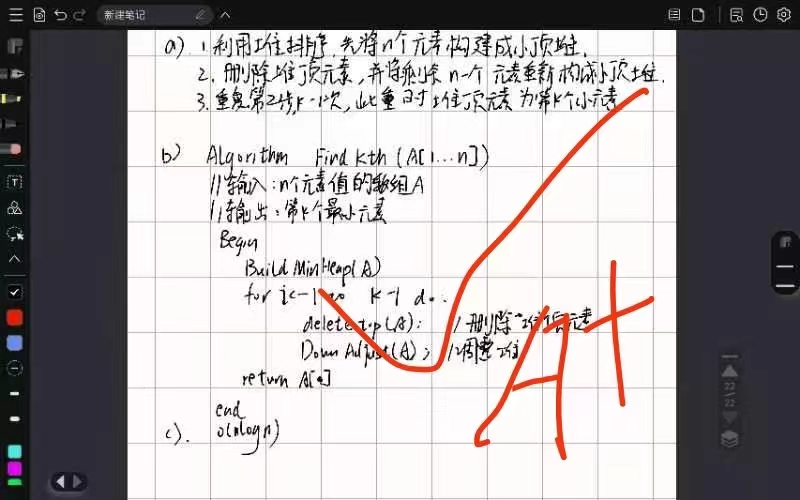 新建笔记
a) 1. 利用堆排序, 先将n个元素构建成小顶堆.
2. 删除堆顶元素, 并将剩余 n-1个 元素重新构成小顶堆.
3. 重复第2步k-1次, 此时堆顶元素为第k个小元素
b) Algorithm Find Kth (A[1...n])
//输入: n个元素值的数组A
//输出: 第k个最小元素
Begin
Build MinHeap(A)
for i<-1 to k-1 do.
deletetop(A); //删除堆顶元素
Down Adjust(A); //调整堆
return A[0]
end
c). O(nlogn)
A+
22
22